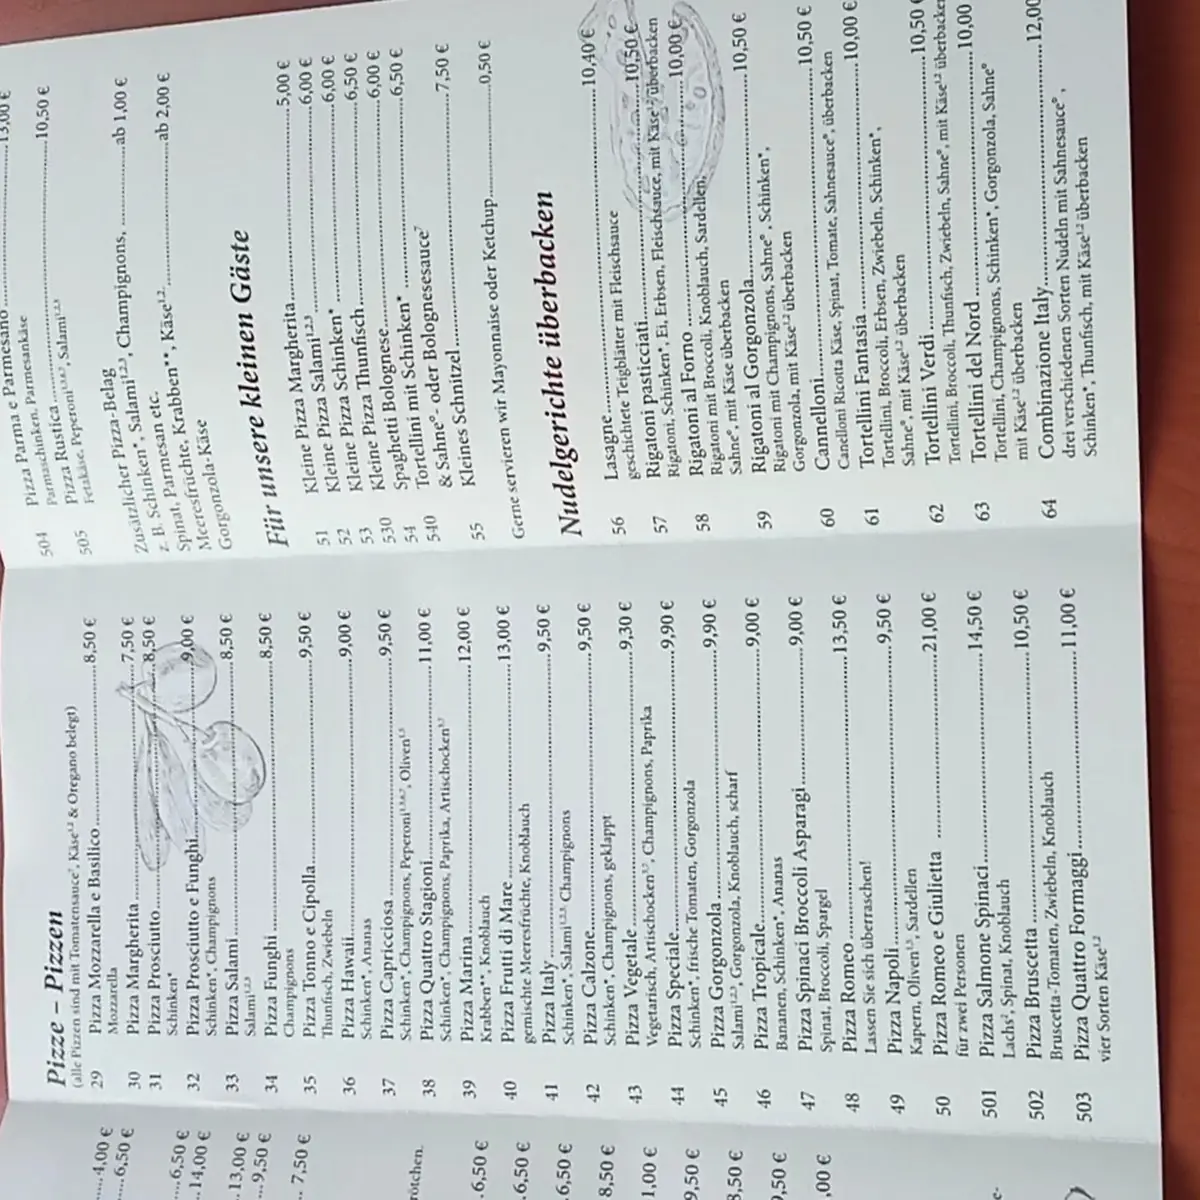 Pizze – Pizzen
(alle Pizzen sind mit Tomatensauce⁷, Käse¹·² & Oregano belegt)
29 Pizza Mozzarella e Basilico 8,50 €
Mozzarella
30 Pizza Margherita 7,50 €
31 Pizza Prosciutto 8,50 €
Schinken*
32 Pizza Prosciutto e Funghi 9,00 €
Schinken*, Champignons
33 Pizza Salami 8,50 €
Salami¹·²·³
34 Pizza Funghi 8,50 €
Champignons
35 Pizza Tonno e Cipolla 9,50 €
Thunfisch, Zwiebeln
36 Pizza Hawaii 9,00 €
Schinken*, Ananas
37 Pizza Capricciosa 9,50 €
Schinken*, Champignons, Peperoni¹·³·⁶·⁷, Oliven¹·³
38 Pizza Quattro Stagioni 11,00 €
Schinken*, Champignons, Paprika, Artischocken³·⁷
39 Pizza Marina 12,00 €
Krabben**, Knoblauch
40 Pizza Frutti di Mare 13,00 €
gemischte Meeresfrüchte, Knoblauch
41 Pizza Italy 9,50 €
Schinken*, Salami¹·²·³, Champignons
42 Pizza Calzone 9,50 €
Schinken*, Champignons, geklappt
43 Pizza Vegetale 9,30 €
Vegetarisch, Artischocken³·⁷, Champignons, Paprika
44 Pizza Speciale 9,90 €
Schinken*, frische Tomaten, Gorgonzola
45 Pizza Gorgonzola 9,90 €
Salami¹·²·³, Gorgonzola, Knoblauch, scharf
46 Pizza Tropicale 9,00 €
Bananen, Schinken*, Ananas
47 Pizza Spinaci Broccoli Asparagi 9,00 €
Spinat, Broccoli, Spargel
48 Pizza Romeo 13,50 €
Lassen Sie sich überraschen!
49 Pizza Napoli 9,50 €
Kapern, Oliven¹·³, Sardellen
50 Pizza Romeo e Giulietta 21,00 €
für zwei Personen
501 Pizza Salmone Spinaci 14,50 €
Lachs², Spinat, Knoblauch
502 Pizza Bruscetta 10,50 €
Bruscetta-Tomaten, Zwiebeln, Knoblauch
503 Pizza Quattro Formaggi 11,00 €
vier Sorten Käse¹·²
504 Pizza Parma e Parmesano 13,00 €
Parmaschinken, Parmesankäse
505 Pizza Rustica 10,50 €
Fetakäse, Peperoni¹·³·⁶·⁷, Salami¹·²·³
Zusätzlicher Pizza-Belag
z. B. Schinken*, Salami¹·²·³, Champignons, ab 1,00 €
Spinat, Parmesan etc.
Meeresfrüchte, Krabben**, Käse¹·². ab 2,00 €
Gorgonzola-Käse
Für unsere kleinen Gäste
51 Kleine Pizza Margherita 5,00 €
52 Kleine Pizza Salami¹·²·³ 6,00 €
53 Kleine Pizza Schinken* 6,00 €
530 Kleine Pizza Thunfisch 6,50 €
54 Spaghetti Bolognese 6,00 €
540 Tortellini mit Schinken* 6,50 €
& Sahne⁹- oder Bolognesesauce⁷
55 Kleines Schnitzel 7,50 €
Gerne servieren wir Mayonnaise oder Ketchup 0,50 €
Nudelgerichte überbacken
56 Lasagne 10,40 €
geschichtete Teigblätter mit Fleischsauce
57 Rigatoni pasticciati 10,50 €
Rigatoni, Schinken*, Ei, Erbsen, Fleischsauce, mit Käse¹·² überbacken
58 Rigatoni al Forno 10,00 €
Rigatoni mit Broccoli, Knoblauch, Sardellen,
Sahne⁹, mit Käse überbacken
59 Rigatoni al Gorgonzola 10,50 €
Rigatoni mit Champignons, Sahne⁹, Schinken*,
Gorgonzola, mit Käse¹·² überbacken
60 Cannelloni 10,50 €
Canelloni Ricotta Käse, Spinat, Tomate, Sahnesauce⁹, überbacken
61 Tortellini Fantasia 10,00 €
Tortellini, Broccoli, Erbsen, Zwiebeln, Schinken*,
Sahne⁹, mit Käse¹·² überbacken
62 Tortellini Verdi 10,50 €
Tortellini, Broccoli, Thunfisch, Zwiebeln, Sahne⁹, mit Käse¹·² überbacken
63 Tortellini del Nord 10,00
Tortellini, Champignons, Schinken*, Gorgonzola, Sahne⁹
mit Käse¹·² überbacken
64 Combinazione Italy 12,00
drei verschiedenen Sorten Nudeln mit Sahnesauce⁹,
Schinken*, Thunfisch, mit Käse¹·² überbacken
4,00 €
6,50 €
6,50 €
14,00 €
13,00 €
9,50 €
7,50 €
rötchen.
6,50 €
6,50 €
6,50 €
8,50 €
1,00 €
9,50 €
8,50 €
9,50 €
,00 €
e-